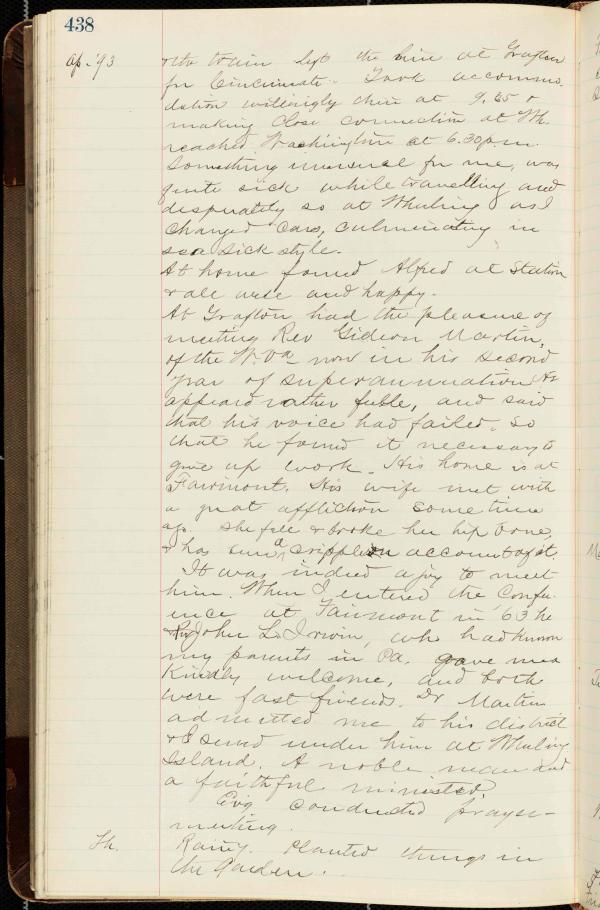 438
Ap. '93
& the train left the line at Grafton
for Cincinnati. Took accommo-
dation willingly there at 9.55 &
making close connection at Wh.
reached Washington at 6.30 p.m.
Something unusual for me, was
quite sick while travelling and
desperately so at Wheeling as I
changed cars, culminating in
sea sick style.
At home found Alfred at Station
& all well and happy.
At Grafton had the pleasure of
meeting Rev Gideon Martin,
of the W. Va now in his second
year of superannuation. He
appeard rather feble, and said
that his voice had failed. so
that he found it necessary to
give up work. His home is at
Fairmont. His wife met with
a great affliction some time
ago. She fell & broke her hip bone,
& has been a cripple on account of it.
It was indeed a joy to meet
him. When I entered the Confer-
ence at Fairmont in '63 he
& Rev John L. Irwin, who had known
my parents in Pa. gave me a
Kindly welcome, and both
were fast friends. Dr Martin
admitted me to his district
& I served under him at Wheeling
Island. A noble man and
a faithful minister.
Evg conducted prayer-
meeting.
Th. Rainy. Planted things in
the Garden.